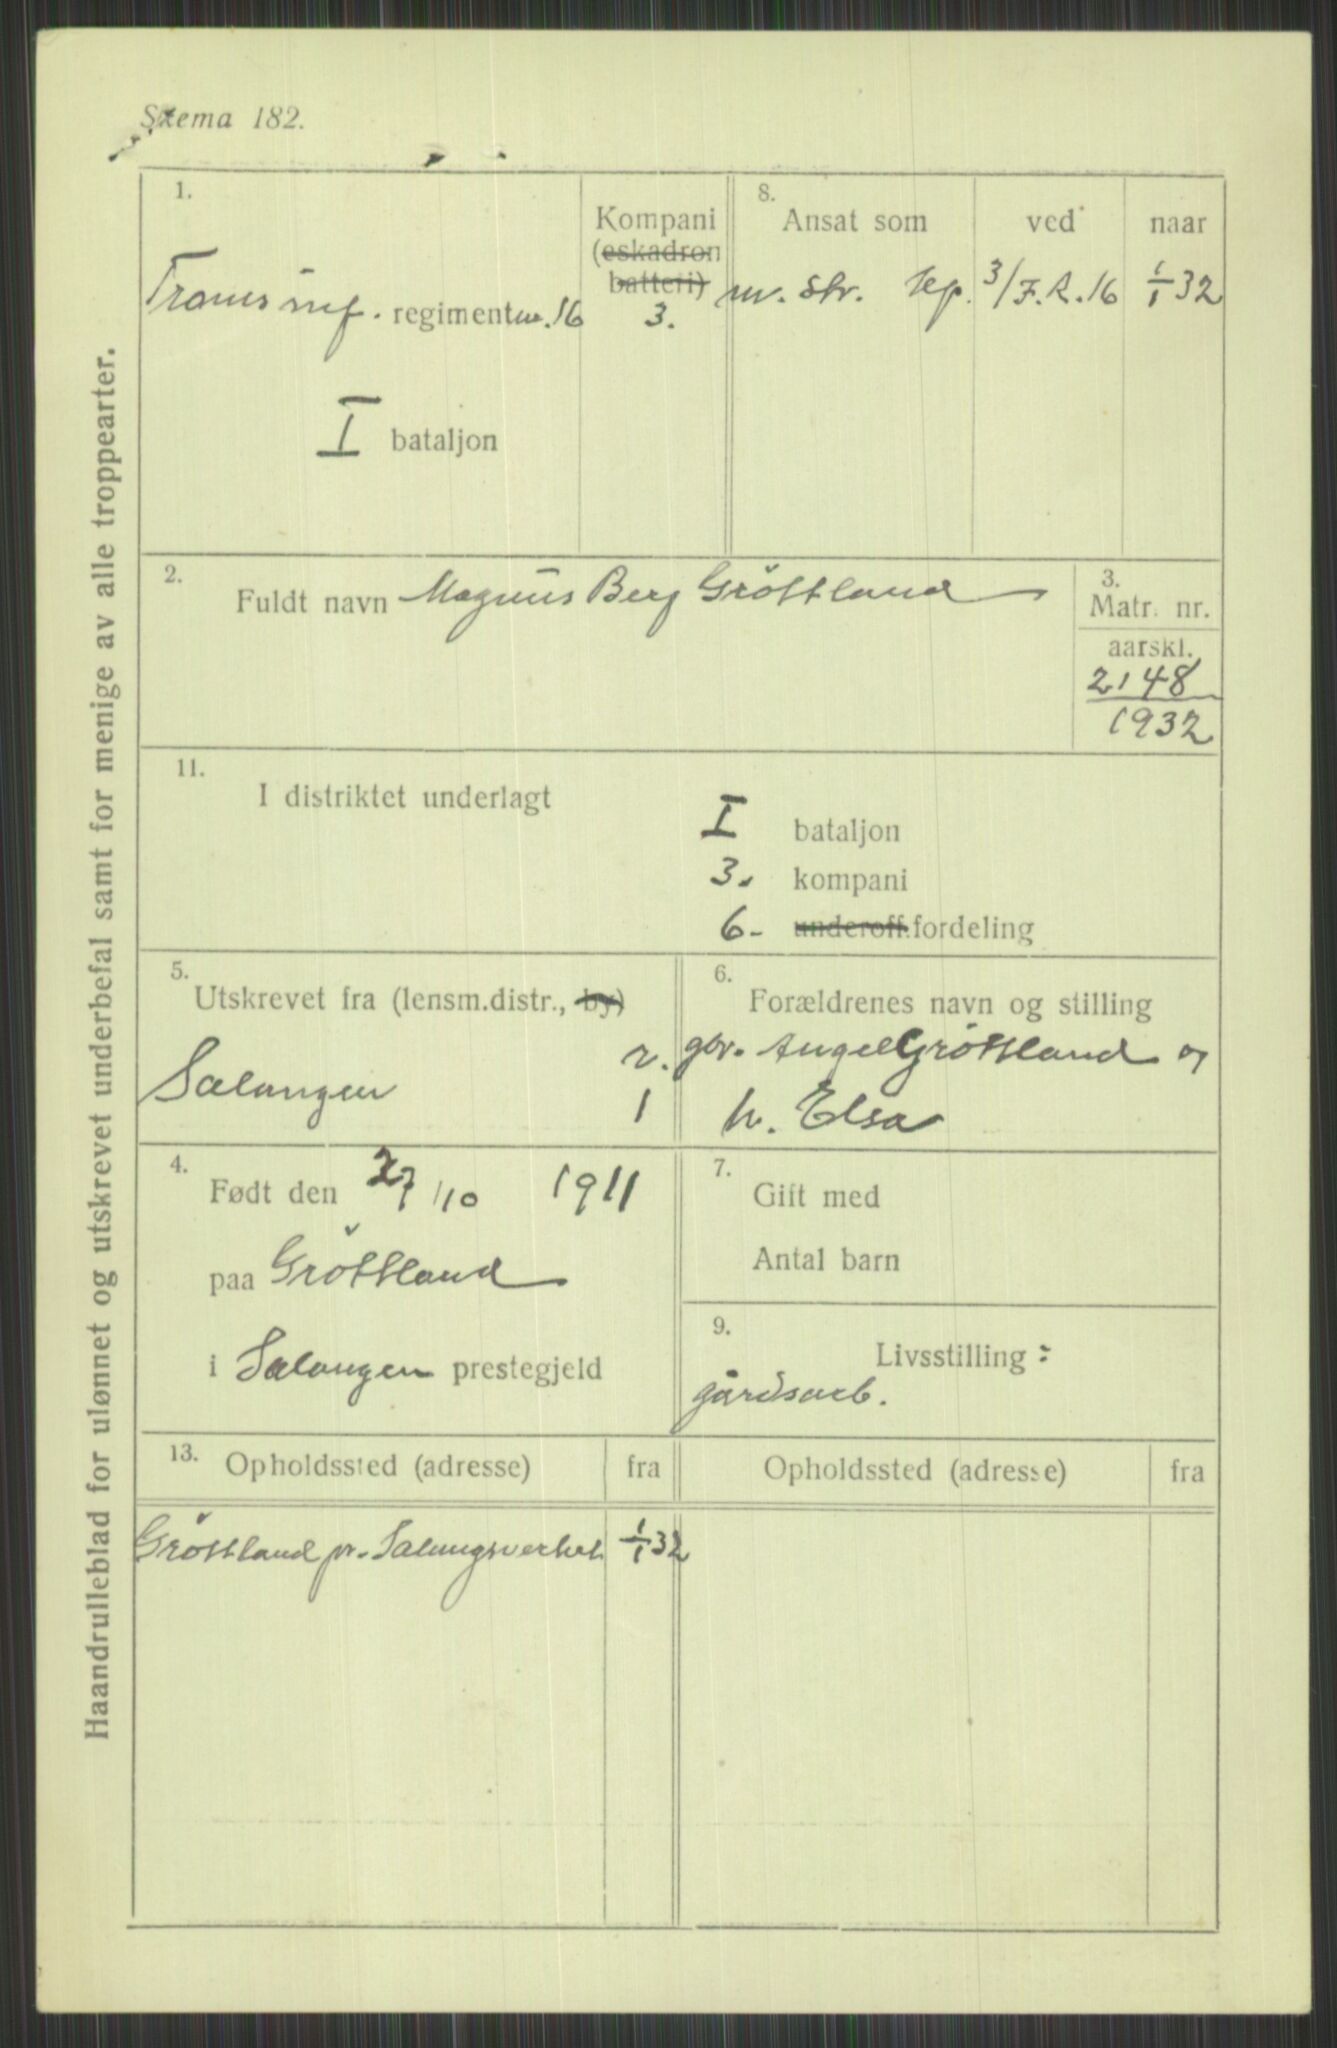 Skema 182.
Haandrulleblad for ulønnet og utskrevet underbefal samt for menige av alle troppearter.
1.
Troms inf. regiment nr. 16
I bataljon
Kompani
(eskadron
batteri)
3.
8.
Ansat som
ved
naar
3/I.R.16
1/1 32
2.
Fuldt navn Magnus Berg Gröttland
3.
Matr. nr.
aarskl.
2148
1932
11.
I distriktet underlagt
I bataljon
3. kompani
6. underoff.fordeling
5.
Utskrevet fra (lensm.distr., by)
Salangen
r.
1
6.
Forældrenes navn og stilling
gbr. Angel Gröttland og
h. Elsa
4.
Født den 27/10 1911
paa Gröttland
i Salangen prestegjeld
7.
Gift med
Antal barn
9.
Livsstilling:
gårdsarb.
13.
Opholdssted (adresse)
fra
Opholdssted (adresse)
fra
Gröttland pr. Salangsverket
1/1 32